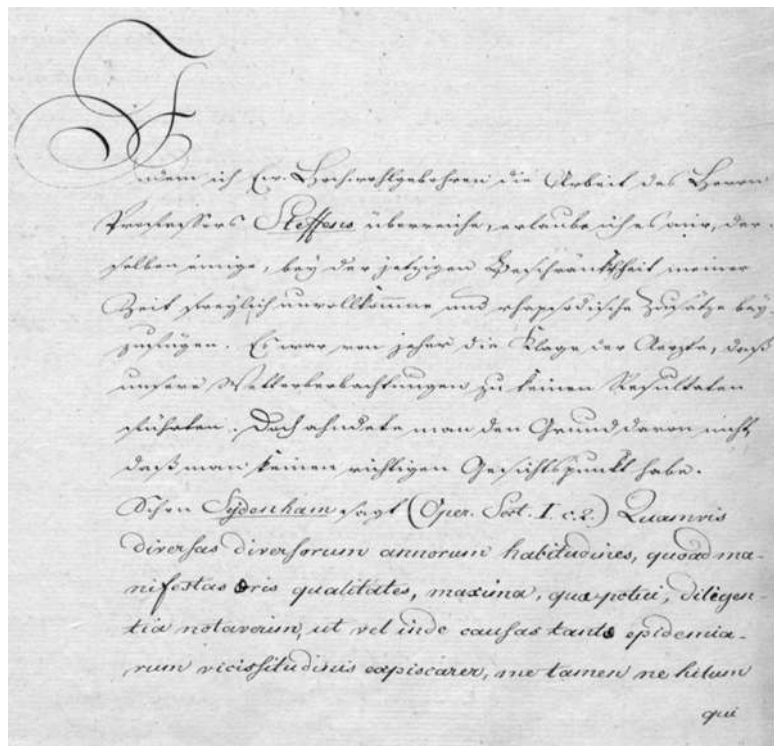 Indem ich Ew. Hochwohlgebohren die Arbeit des Herrn
Professors Steffens überreiche, erlaube ich es mir, der-
selben einige, bey der jetzigen Beschränktheit meiner
Zeit freylich unvollkommne und rhapsodische Zusätze bey-
zufügen. Es war von jeher die Klage der Aerzte, daß
unsere Wetterbeobachtungen zu keinen Resultaten
führten. Doch ahndete man den Grund davon nicht,
daß man keinen richtigen Gesichtspunkt habe.
Schon Sydenham sagt (Oper. Sect. I. c. 2.) Quamvis
diversas diversorum annorum habitudines, quoad ma-
nifestas aëris qualitates, maxima, qua potui, diligen-
tia notaverim, ut vel inde causas tantae epidemia-
rum vicissitudinis expiscarer, me tamen ne hilum
qui